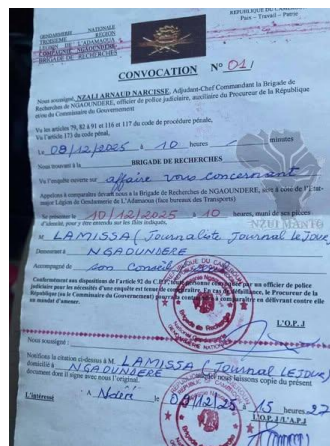 GENDARMERIE NATIONALE
REPUBLIQUE DU CAMEROUN
Paix – Travail – Patrie
TROISIEME REGION
LEGION DE L'ADAMAOUA
COMPAGNIE NGAOUNDERE
CONVOCATION N° 01/
Nous soussigné, NZALI ARNAUD NARCISSE, Adjudant-Chef Commandant la Brigade de
Recherches de NGAOUNDERE, officier de police judiciaire, auxiliaire du Procureur de la République
du Commissaire du Gouvernement
Vu les articles 79, 82 à 91 et 116 et 117 du code de procédure pénale,
Vu l'article 173 du code pénal,
Le 08/12/2025 à 10 heures minutes
Nous trouvant à la BRIGADE DE RECHERCHES
Vu l'enquête ouverte sur affaire vous concernant
Appelons à comparaître devant nous à la Brigade de Recherches de NGAOUNDERE, sise à côté de l'Etat-
major Légion de Gendarmerie de L'Adamaoua (face bureaux des Transports)
Se présenter le 10/12/2025 à 10 heures, muni de ses pièces
d'identité, pour y être entendu sur les faits indiqués,
M LAMISSA (Journaliste Journal LE JOUR)
Demeurant à NGAOUNDERE
Accompagné de son Conseil
NZUIMANTO
Conformément aux dispositions de l'article 92 du C.P.P.
judiciaire pour les nécessités d'une enquête est tenue de comparaître. En cas de défaillance, le Procureur de la
République (ou le Commissaire du Gouvernement) pourra contraindre à comparaître en délivrant contre elle
un mandat d'amener.
L'O.P.J
Nous soussigné
Notifions la citation ci-dessus à M. LAMISSA (Journal LE JOUR)
domicilié à NGAOUNDERE auquel nous laissons copie du présent
document dont il signe avec nous l'original.
L'intéressé
à Ndéré le 08/12/25 à 15 heures 27
L'O.P.J/L'A.P.J